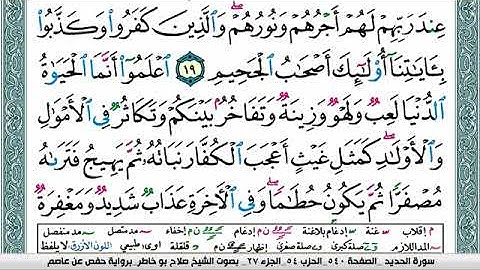 عِندَ رَبِّهِمْ لَهُمْ أَجْرُهُمْ وَنُورُهُمْ ۖ وَٱلَّذِينَ كَفَرُوا۟ وَكَذَّبُوا۟
بِـَٔايَـٰتِنَآ أُو۟لَـٰٓئِكَ أَصْحَـٰبُ ٱلْجَحِيمِ ١٩ ٱعْلَمُوٓا۟ أَنَّمَا ٱلْحَيَوٰةُ
ٱلدُّنْيَا لَعِبٌ وَلَهْوٌ وَزِينَةٌ وَتَفَاخُرٌۢ بَيْنَكُمْ وَتَكَاثُرٌ فِى ٱلْأَمْوَٰلِ
وَٱلْأَوْلَـٰدِ ۖ كَمَثَلِ غَيْثٍ أَعْجَبَ ٱلْكُفَّارَ نَبَاتُهُۥ ثُمَّ يَهِيجُ فَتَرَىٰهُ
مُصْفَرًّا ثُمَّ يَكُونُ حُطَـٰمًا ۖ وَفِى ٱلْـَٔاخِرَةِ عَذَابٌ شَدِيدٌ وَمَغْفِرَةٌ
م إقلاب غنة إدغام بلاغنة ن م إدغام ن م إخفاء مد متصل مد منفصل
المد اللازم صلة كبرى صلة صغرى إظهار ن م قلقلة اوى طبيعي اللون الأزرق لا يلفظ
سورة الحديد - الصفحة ٥٤٠ - الحزب ٥٤ - الجزء ٢٧ - بصوت الشيخ صلاح بو خاطر - برواية حفص عن عاصم